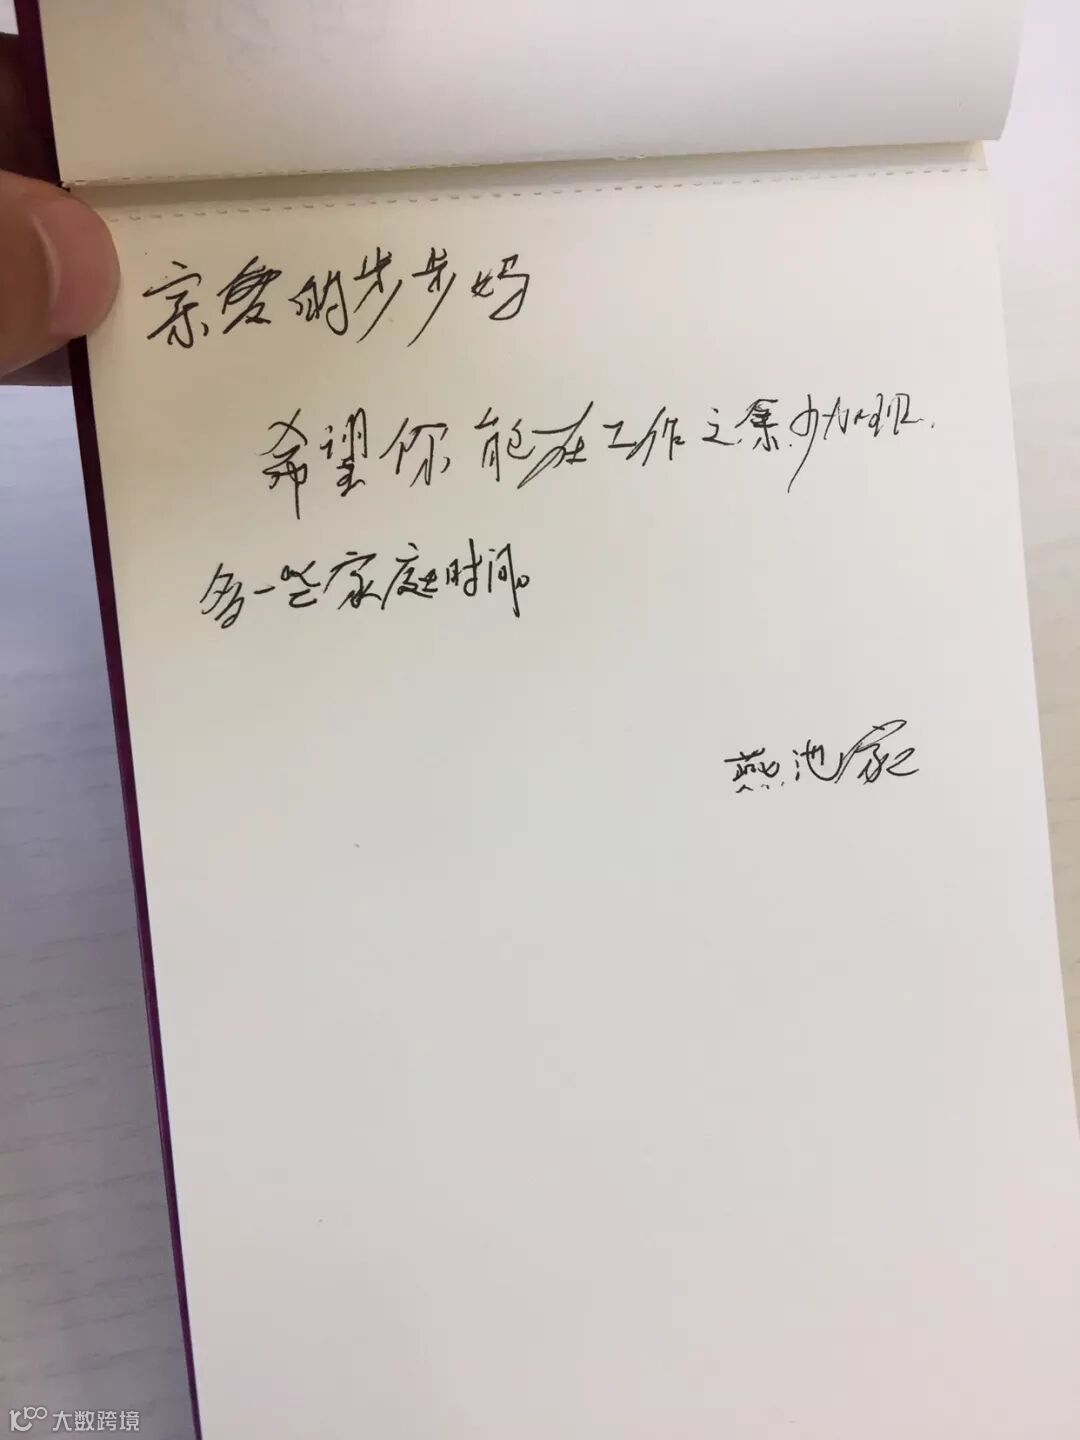 亲爱的步步妈
希望你能在工作之余少加班.
多一些家庭时间。
燕池家
大数跨境